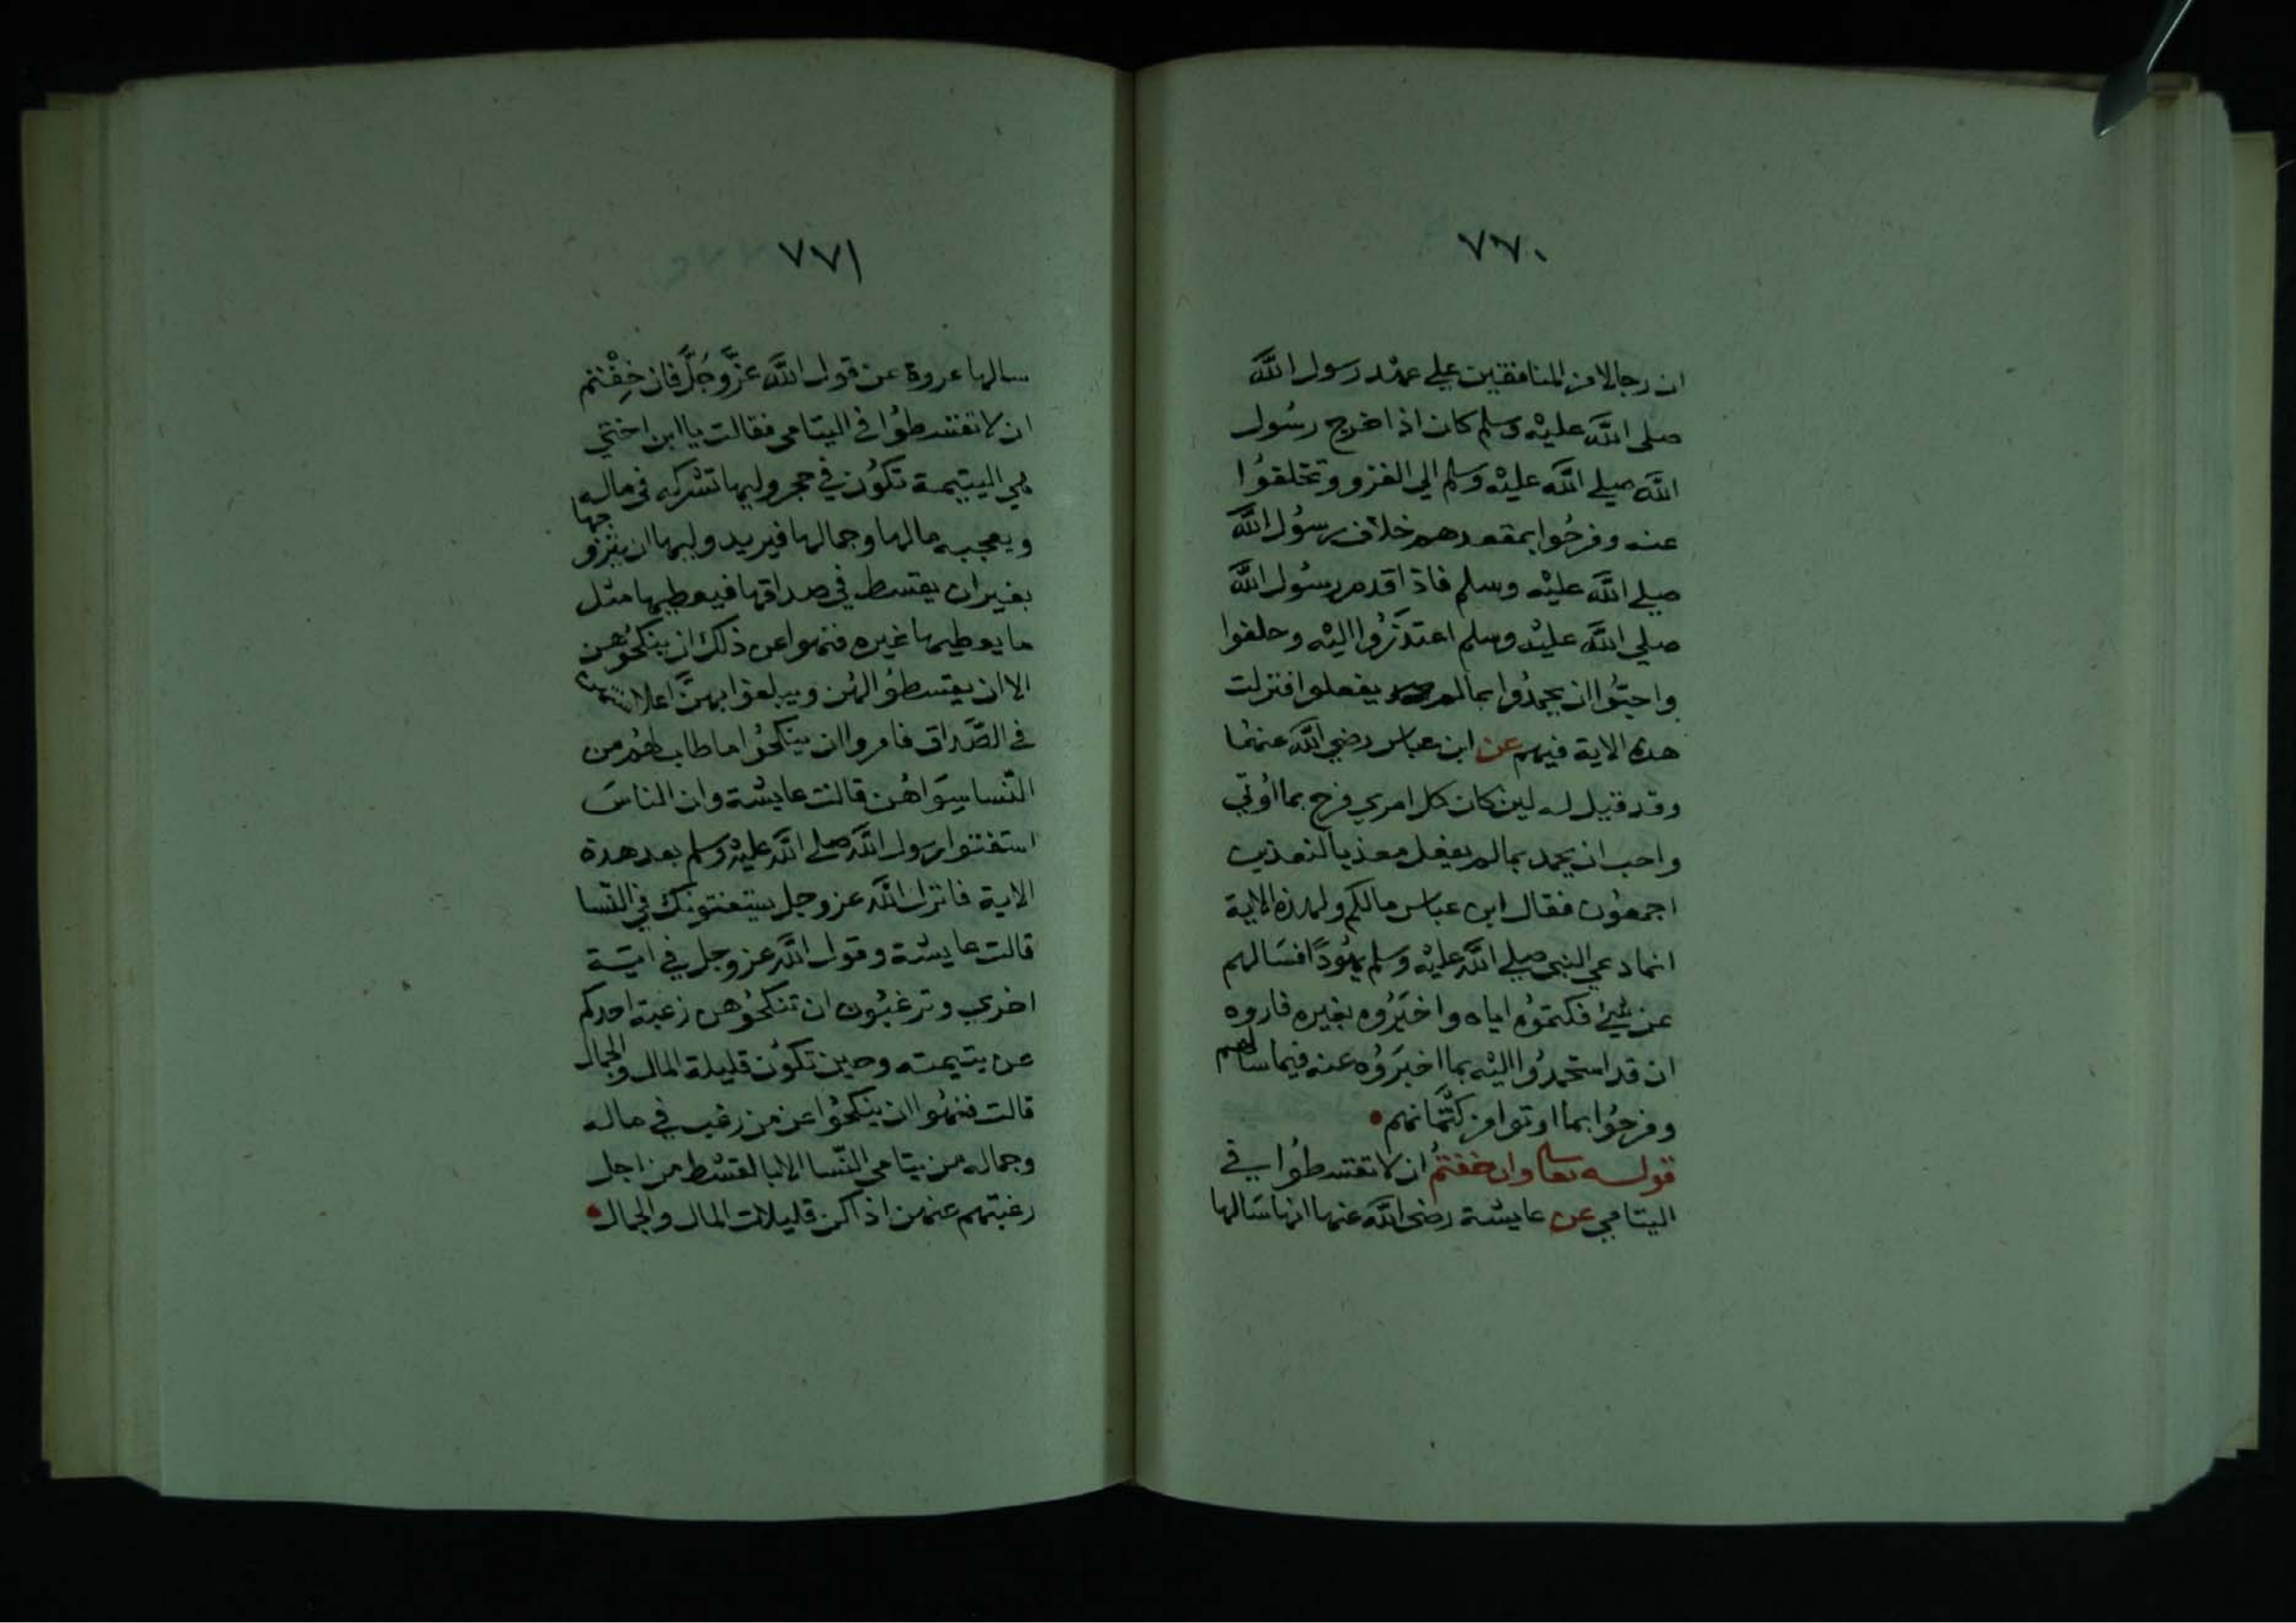 ٧٧٠
ان رجالا من المنافقين علي عهد رسول الله
صلى الله عليه وسلم كان اذا خرج رسول
الله صلي الله عليه وسلم الي الغزو وتخلفوا
عنه وفرحوا بمقعدهم خلاف رسول الله
صلي الله عليه وسلم فاذا قدم رسول الله
صلي الله عليه وسلم اعتذروا اليه وحلفوا
واحبوا ان يحمدوا بما لم يفعلوا فنزلت
هده الاية فيهم عن ابن عباس رضي الله عنهما
وقد قيل له لين كان كل امري فرح بما اوتي
واحب ان يحمد بما لم يفعل معذبا لنعذبن
اجمعون فقال ابن عباس مالكم ولهذه الاية
انما دعي النبي صلي الله عليه وسلم يهودا فسالهم
عن شئ فكتموه اياه واخبروه بغيره فاروه
ان قد استحمدوا اليه بما اخبروه عنه فيما سالهم
وفرحوا بما اوتوا من كتمانهم
قوله تعالى وان خفتم ان لا تقسطوا في
اليتامي عن عايشة رضي الله عنها انها سالها
٧٧١
سالها عروة عن قول الله عز وجل فان خفتم
ان لا تقسطوا في اليتامى فقالت يا ابن اختي
هي اليتيمة تكون في حجر وليها تشركه في ماله
ويعجبه مالها وجمالها فيريد وليها ان يتزوجها
بغير ان يقسط في صداقها فيعطيها مثل
ما يعطيها غيره فنهوا عن ذلك ان ينكحوهن
الا ان يقسطوا لهن ويبلغوا بهن اعلا سنتهن
في الصداق فامروا ان ينكحوا ما طاب لهم من
النسا سواهن قالت عايشة وان الناس
استفتوا رسول الله صلي الله عليه وسلم بعد هدة
الاية فانزل الله عز وجل يستفتونك في النسا
قالت عايشة وقول الله عز وجل في اية
اخري وترغبون ان تنكحوهن رغبة احدكم
عن يتيمته وحين تكون قليلة المال والجمال
قالت فنهوا ان ينكحوا عن من رغب في ماله
وجماله من يتامي النسا الا بالقسط من اجل
رغبتهم عنهن اذا كن قليلات المال والجمال